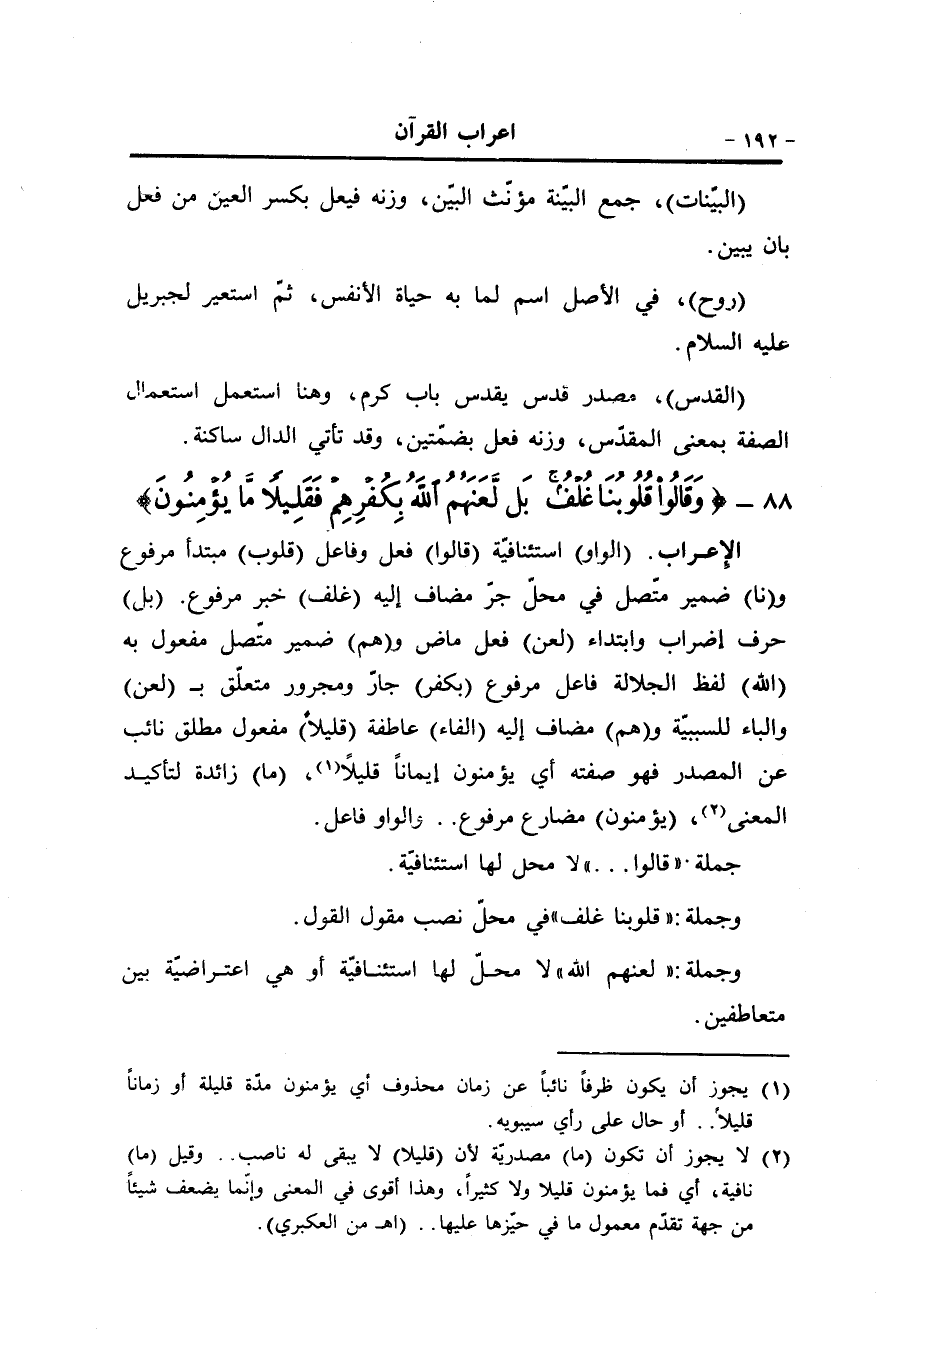 - ١٩٢ - اعراب القرآن
(البيّنات)، جمع البيّنة مؤنّث البيّن، وزنه فيعل بكسر العين من فعل
بان يبين.
(روح)، في الأصل اسم لما به حياة الأنفس، ثمّ استعير لجبريل
عليه السلام.
(القدس)، مصدر قدس يقدس باب كرم، وهنا استعمل استعمال
الصفة بمعنى المقدّس، وزنه فعل بضمّتين، وقد تأتي الدال ساكنة.
٨٨ - ﴿ وَقَالُوا۟ قُلُوبُنَا غُلْفٌۢ ۚ بَل لَّعَنَهُمُ ٱللَّهُ بِكُفْرِهِمْ فَقَلِيلًا مَّا يُؤْمِنُونَ ﴾
الإعراب. (الواو) استئنافيّة (قالوا) فعل وفاعل (قلوب) مبتدأ مرفوع
و(نا) ضمير متّصل في محلّ جرّ مضاف إليه (غلف) خبر مرفوع. (بل)
حرف إضراب وابتداء (لعن) فعل ماض و(هم) ضمير متّصل مفعول به
(الله) لفظ الجلالة فاعل مرفوع (بكفر) جارّ ومجرور متعلّق بـ (لعن)
والباء للسببيّة و(هم) مضاف إليه (الفاء) عاطفة (قليلاً) مفعول مطلق نائب
عن المصدر فهو صفته أي يؤمنون إيماناً قليلاً(١)، (ما) زائدة لتأكيد
المعنى(٢)، (يؤمنون) مضارع مرفوع.. والواو فاعل.
جملة: «قالوا...» لا محل لها استئنافيّة.
وجملة: «قلوبنا غلف» في محلّ نصب مقول القول.
وجملة: «لعنهم الله» لا محلّ لها استئنافيّة أو هي اعتراضيّة بين
متعاطفين.
(١) يجوز أن يكون ظرفاً نائباً عن زمان محذوف أي يؤمنون مدّة قليلة أو زماناً
قليلاً.. أو حال على رأي سيبويه.
(٢) لا يجوز أن تكون (ما) مصدريّة لأن (قليلا) لا يبقى له ناصب.. وقيل (ما)
نافية، أي فما يؤمنون قليلا ولا كثيراً، وهذا أقوى في المعنى وإنّما يضعف شيئاً
من جهة تقدّم معمول ما في حيّزها عليها.. (اهـ من العكبري).